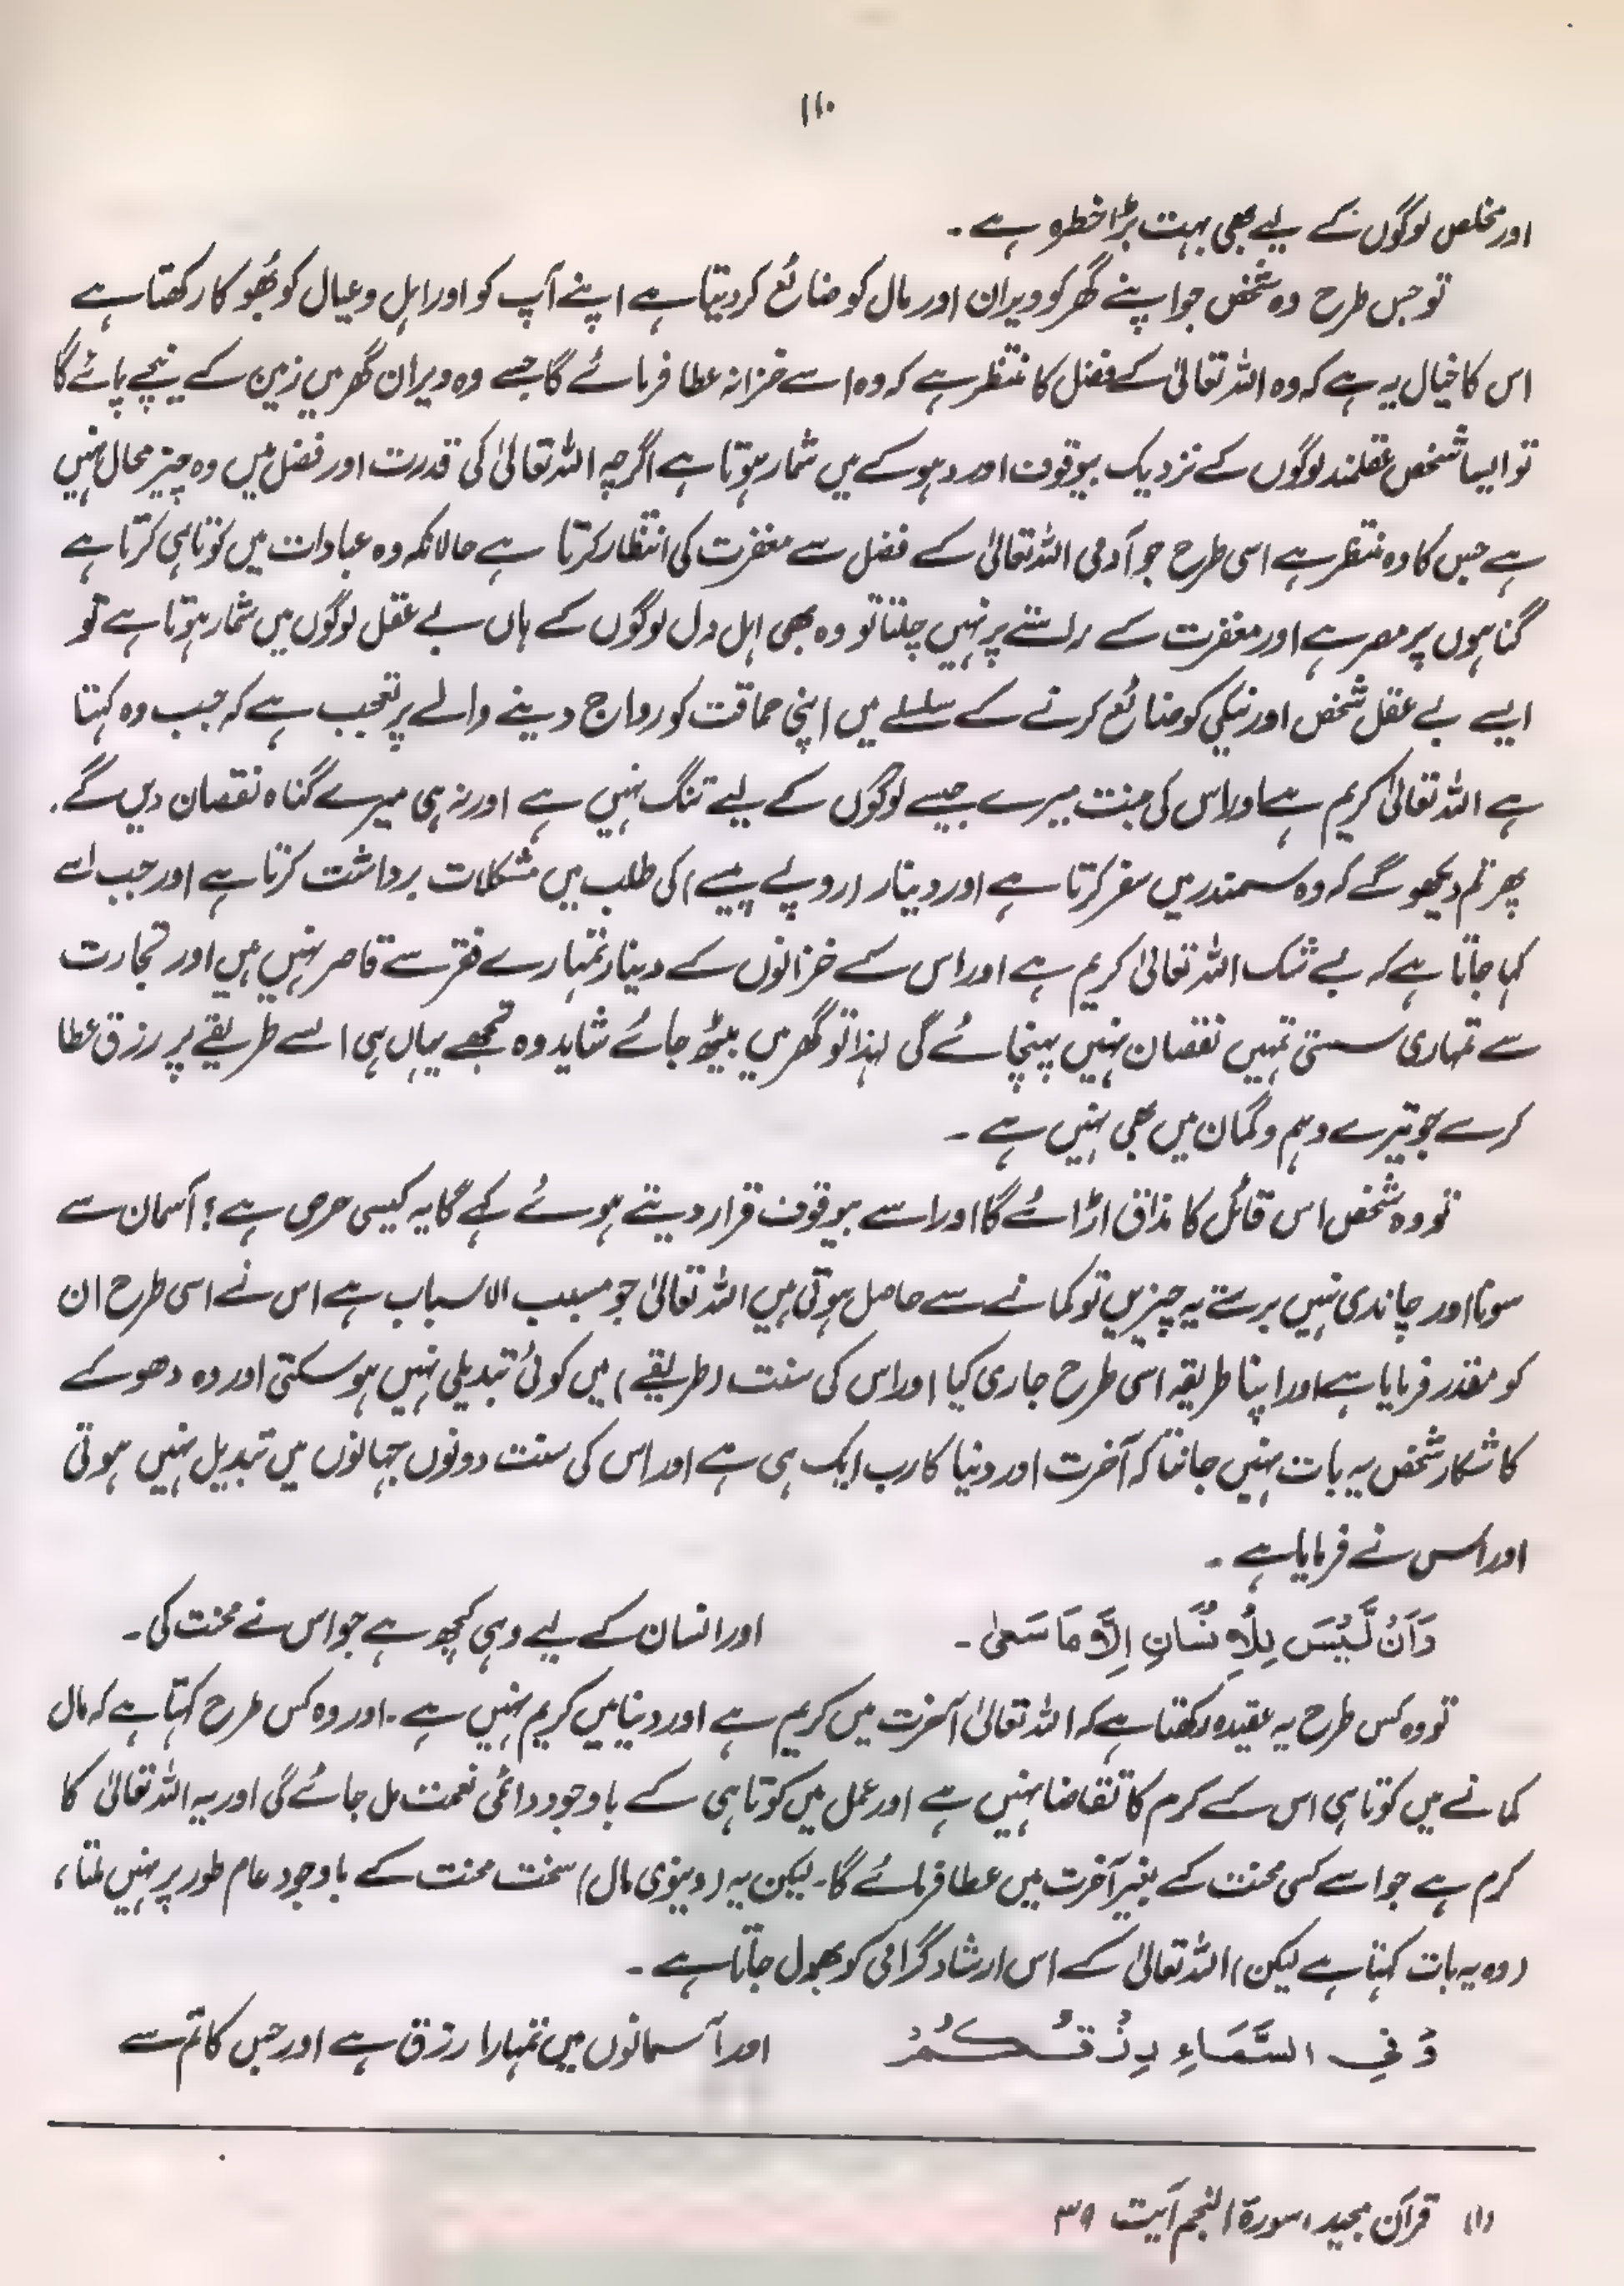 ۱۱۰
اور مخلص لوگوں کے لیے بھی بہت بڑا خطرہ ہے۔
تو جس طرح وہ شخص جو اپنے گھر کو ویران اور مال کو ضائع کر دیتا ہے اپنے آپ کو اور اہل و عیال کو بھوکا رکھتا ہے
اس کا خیال یہ ہے کہ وہ اللہ تعالیٰ کے فضل کا منتظر ہے کہ وہ اسے خزانہ عطا فرمائے گا جسے وہ ویران گھر میں زمین کے نیچے پائے گا
تو ایسا شخص عقلمند لوگوں کے نزدیک بیوقوف اور دہوکے میں شمار ہوتا ہے اگرچہ اللہ تعالیٰ کی قدرت اور فضل میں وہ چیز محال نہیں
ہے جس کا وہ منتظر ہے اسی طرح جو آدمی اللہ تعالیٰ کے فضل سے مغفرت کی انتظار کرتا ہے حالانکہ وہ عبادات میں کوتاہی کرتا ہے
گناہوں پر مصر ہے اور مغفرت کے راستے پر نہیں چلتا تو وہ بھی اہل دل لوگوں کے ہاں بے عقل لوگوں میں شمار ہوتا ہے تو
ایسے بے عقل شخص اور نیکی کو ضائع کرنے کے سلسلے میں اپنی حماقت کو رواج دینے والے پر تعجب ہے کہ جب وہ کہتا
ہے اللہ تعالیٰ کریم ہے اور اس کی جنت میرے جیسے لوگوں کے لیے تنگ نہیں ہے اور نہ ہی میرے گناہ نقصان دیں گے۔
پھر تم دیکھو گے کہ وہ سمندر میں سفر کرتا ہے اور دینار (روپے پیسے) کی طلب میں مشکلات برداشت کرتا ہے اور جب اسے
کہا جاتا ہے کہ بے شک اللہ تعالیٰ کریم ہے اور اس کے خزانوں کے دینار تمہارے فقر سے قاصر نہیں ہیں اور تجارت
سے تمہاری سستی تمہیں نقصان نہیں پہنچائے گی لہذا تو گھر میں بیٹھ جائے شاید وہ تجھے یہاں ہی اسے طریقے پر رزق عطا
کرے جو تیرے وہم و گمان میں بھی نہیں ہے۔
تو وہ شخص اس قائل کا مذاق اڑائے گا اور اسے بیوقوف قرار دیتے ہوئے کہے گا یہ کیسی حرص ہے؟ آسمان سے
سونا اور چاندی نہیں برستے یہ چیزیں تو کمانے سے حاصل ہوتی ہیں اللہ تعالیٰ جو مسبب الاسباب ہے اس نے اسی طرح ان
کو مقدر فرمایا ہے اور اپنا طریقہ اسی طرح جاری کیا اور اس کی سنت (طریقے) میں کوئی تبدیلی نہیں ہو سکتی اور وہ دھوکے
کا شکار شخص یہ بات نہیں جانتا کہ آخرت اور دنیا کا رب ایک ہی ہے اور اس کی سنت دونوں جہانوں میں تبدیل نہیں ہوتی
اور اس نے فرمایا ہے۔
وَاَنْ لَّيْسَ لِلْاِنْسَانِ اِلَّا مَا سَعٰی۔ اور انسان کے لیے وہی کچھ ہے جو اس نے محنت کی۔
تو وہ کس طرح یہ عقیدہ رکھتا ہے کہ اللہ تعالیٰ آخرت میں کریم ہے اور دنیا میں کریم نہیں ہے۔ اور وہ کس طرح کہتا ہے کہ مال
کمانے میں کوتاہی اس کے کرم کا تقاضا نہیں ہے اور عمل میں کوتاہی کے باوجود دائمی نعمت مل جائے گی اور یہ اللہ تعالیٰ کا
کرم ہے جو اسے کسی محنت کے بغیر آخرت میں عطا فرمائے گا۔ لیکن یہ (دینوی مال) سخت محنت کے باوجود عام طور پر نہیں ملتا،
(وہ یہ بات کہتا ہے لیکن) اللہ تعالیٰ کے اس ارشاد گرامی کو بھول جاتا ہے۔
وَفِي السَّمَاءِ رِزْقُكُمْ اور آسمانوں میں تمہارا رزق ہے اور جس کا تم سے
(۱) قرآن مجید، سورۃ النجم آیت ۳۹